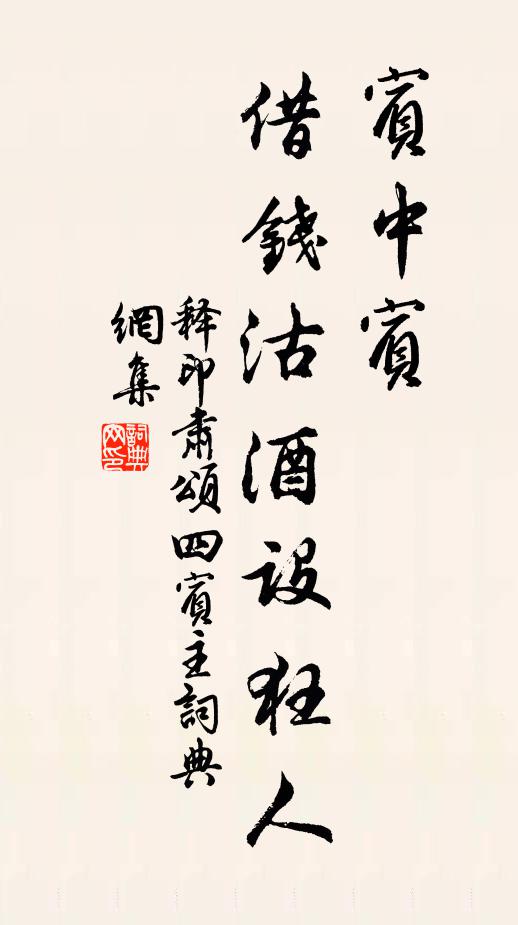 賓中賓
借錢沽酒設狂人
释印肅頌四賓主詞典
網集
詞典
网印